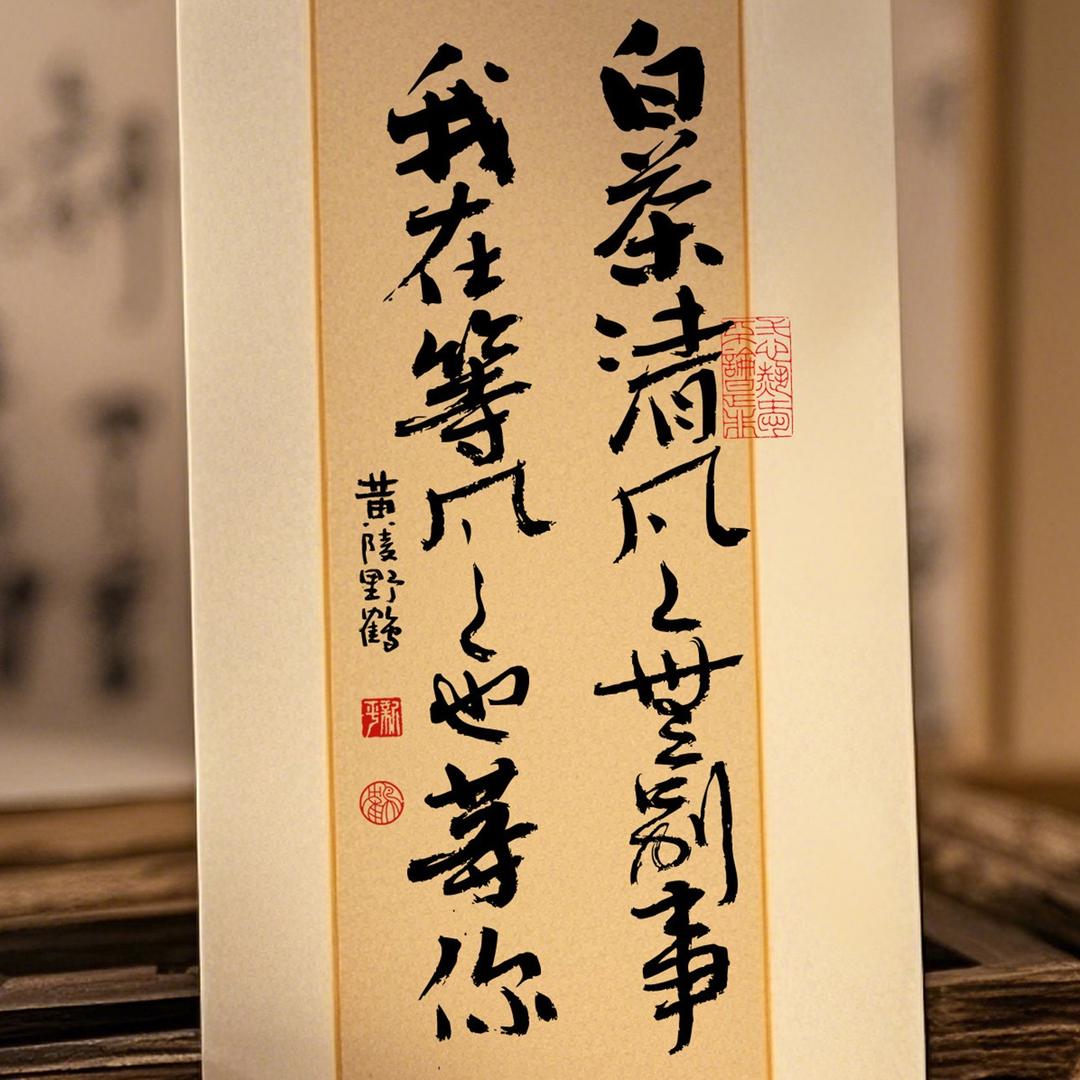 白茶清风無别事
我在等风也等你
黄陵野鹤
新平